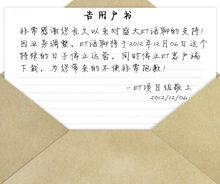 告用户书
非常感谢您长久以来对盛大ET语聊的支持!
因业务调整,ET语聊将于2012年12月06日这个
特殊的日子停止运营,同时停止ET客户端
下载,为您带来的不便非常抱歉!
—ET项目组敬上
2012/12/06